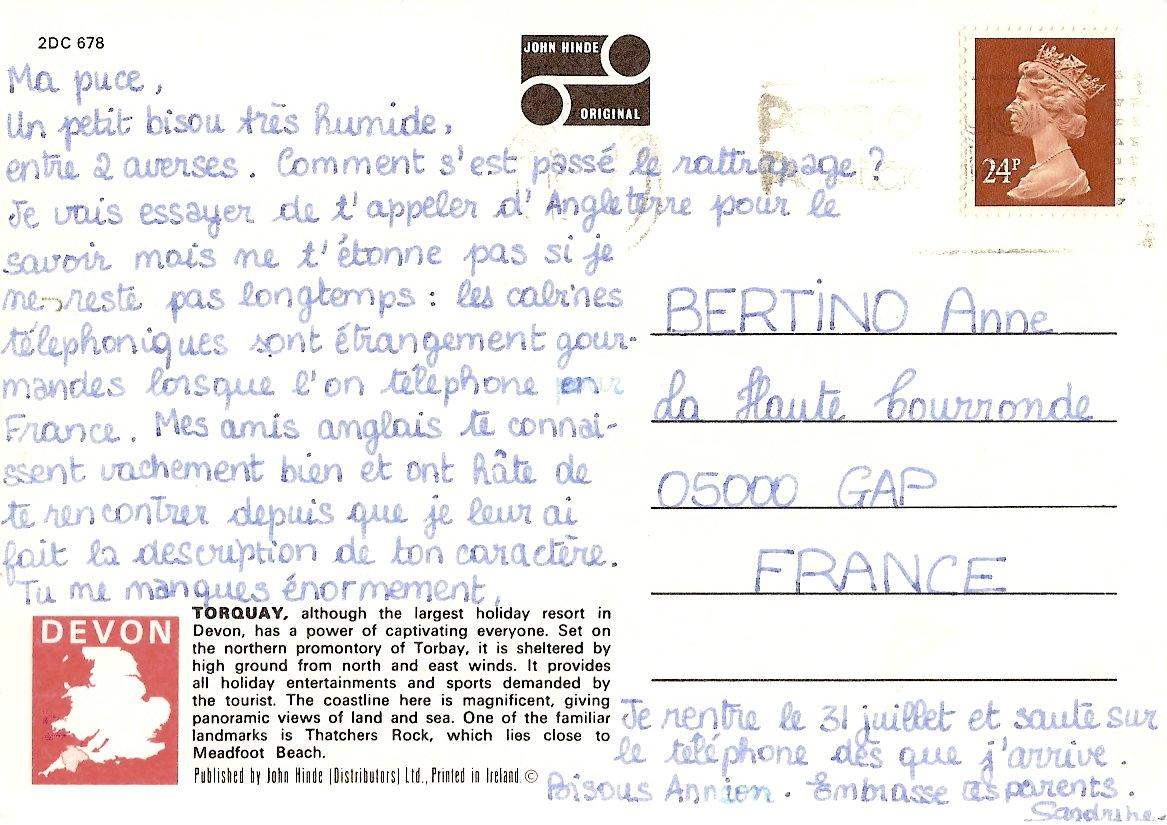 2DC 678
JOHN HINDE
ORIGINAL
24P
Ma puce,
Un petit bisou très humide,
entre 2 averses. Comment s'est passé le rattrapage ?
Je vais essayer de t'appeler d'Angleterre pour le
savoir mais ne t'étonne pas si je
ne reste pas longtemps : les cabines
téléphoniques sont étrangement gour-
mandes lorsque l'on téléphone en
France. Mes amis anglais te connai-
ssent vachement bien et ont hâte de
te rencontrer depuis que je leur ai
fait la description de ton caractère.
Tu me manques énormement,
BERTINO Anne
La Haute Courronde
05000 GAP
FRANCE
DEVON
TORQUAY, although the largest holiday resort in
Devon, has a power of captivating everyone. Set on
the northern promontory of Torbay, it is sheltered by
high ground from north and east winds. It provides
all holiday entertainments and sports demanded by
the tourist. The coastline here is magnificent, giving
panoramic views of land and sea. One of the familiar
landmarks is Thatchers Rock, which lies close to
Meadfoot Beach.
Published by John Hinde (Distributors) Ltd., Printed in Ireland. ©
Je rentre le 31 juillet et saute sur
le téléphone dès que j'arrive.
Bisous Annion. Embrasse tes parents.
Sandrine